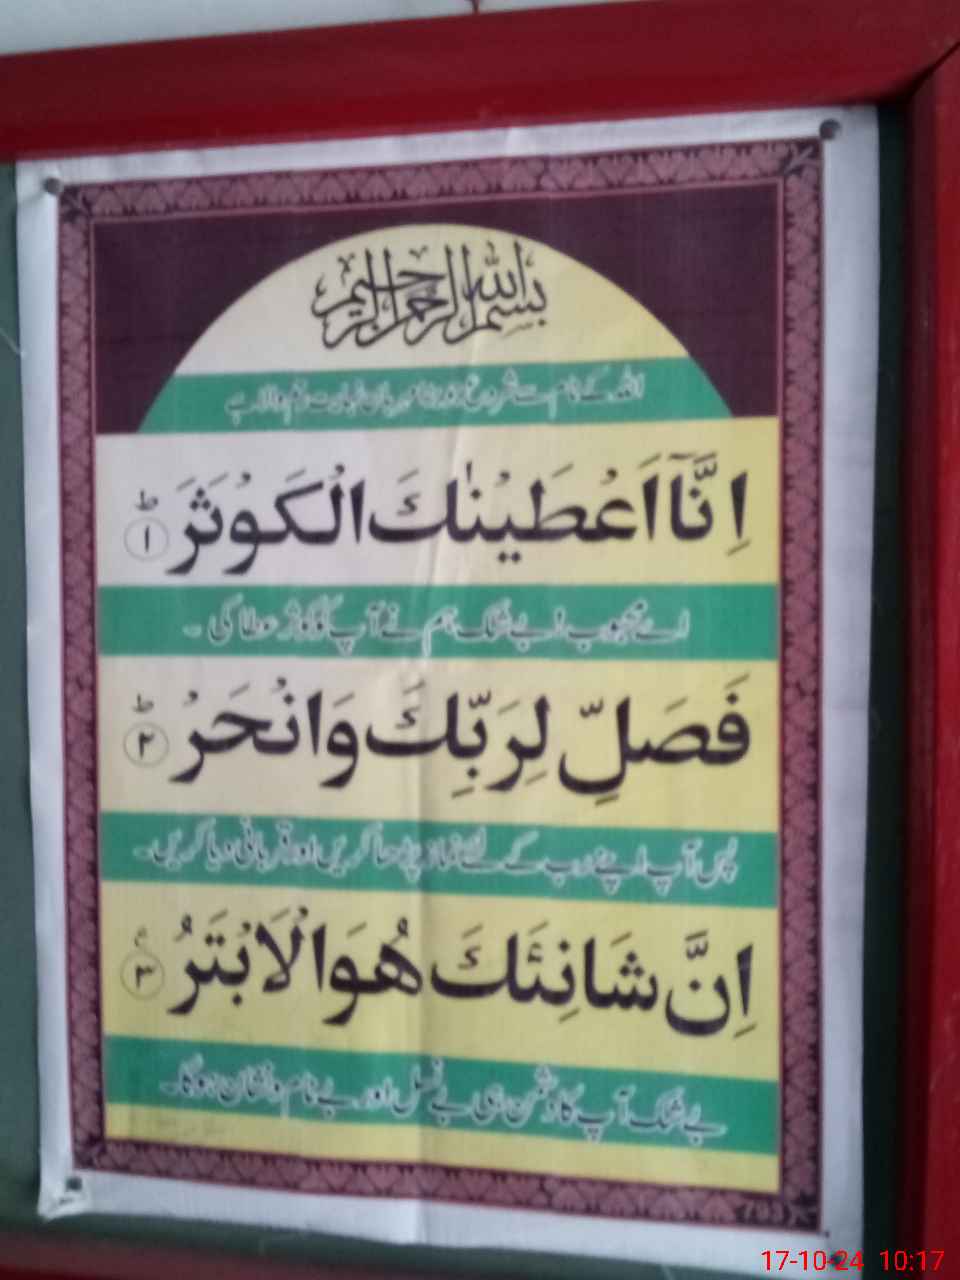 بسم الله الرحمن الرحيم
اللہ کے نام سے شروع جو بڑا مہربان نہایت رحم والا ہے
اِنَّاۤ اَعْطَیْنٰكَ الْكَوْثَرَ ؕ ۱
اے محبوب! بے شک ہم نے آپ کو کوثر عطا کی ۔
فَصَلِّ لِرَبِّكَ وَانْحَرْ ؕ ۲
پس آپ اپنے رب کے لئے نماز پڑھا کریں اور قربانی دیا کریں۔
اِنَّ شَانِئَكَ هُوَالْاَبْتَرُ ۳
بے شک آپ کا دشمن ہی بے نسل اور بے نام و نشان ہوگا۔
17-10-24 10:17